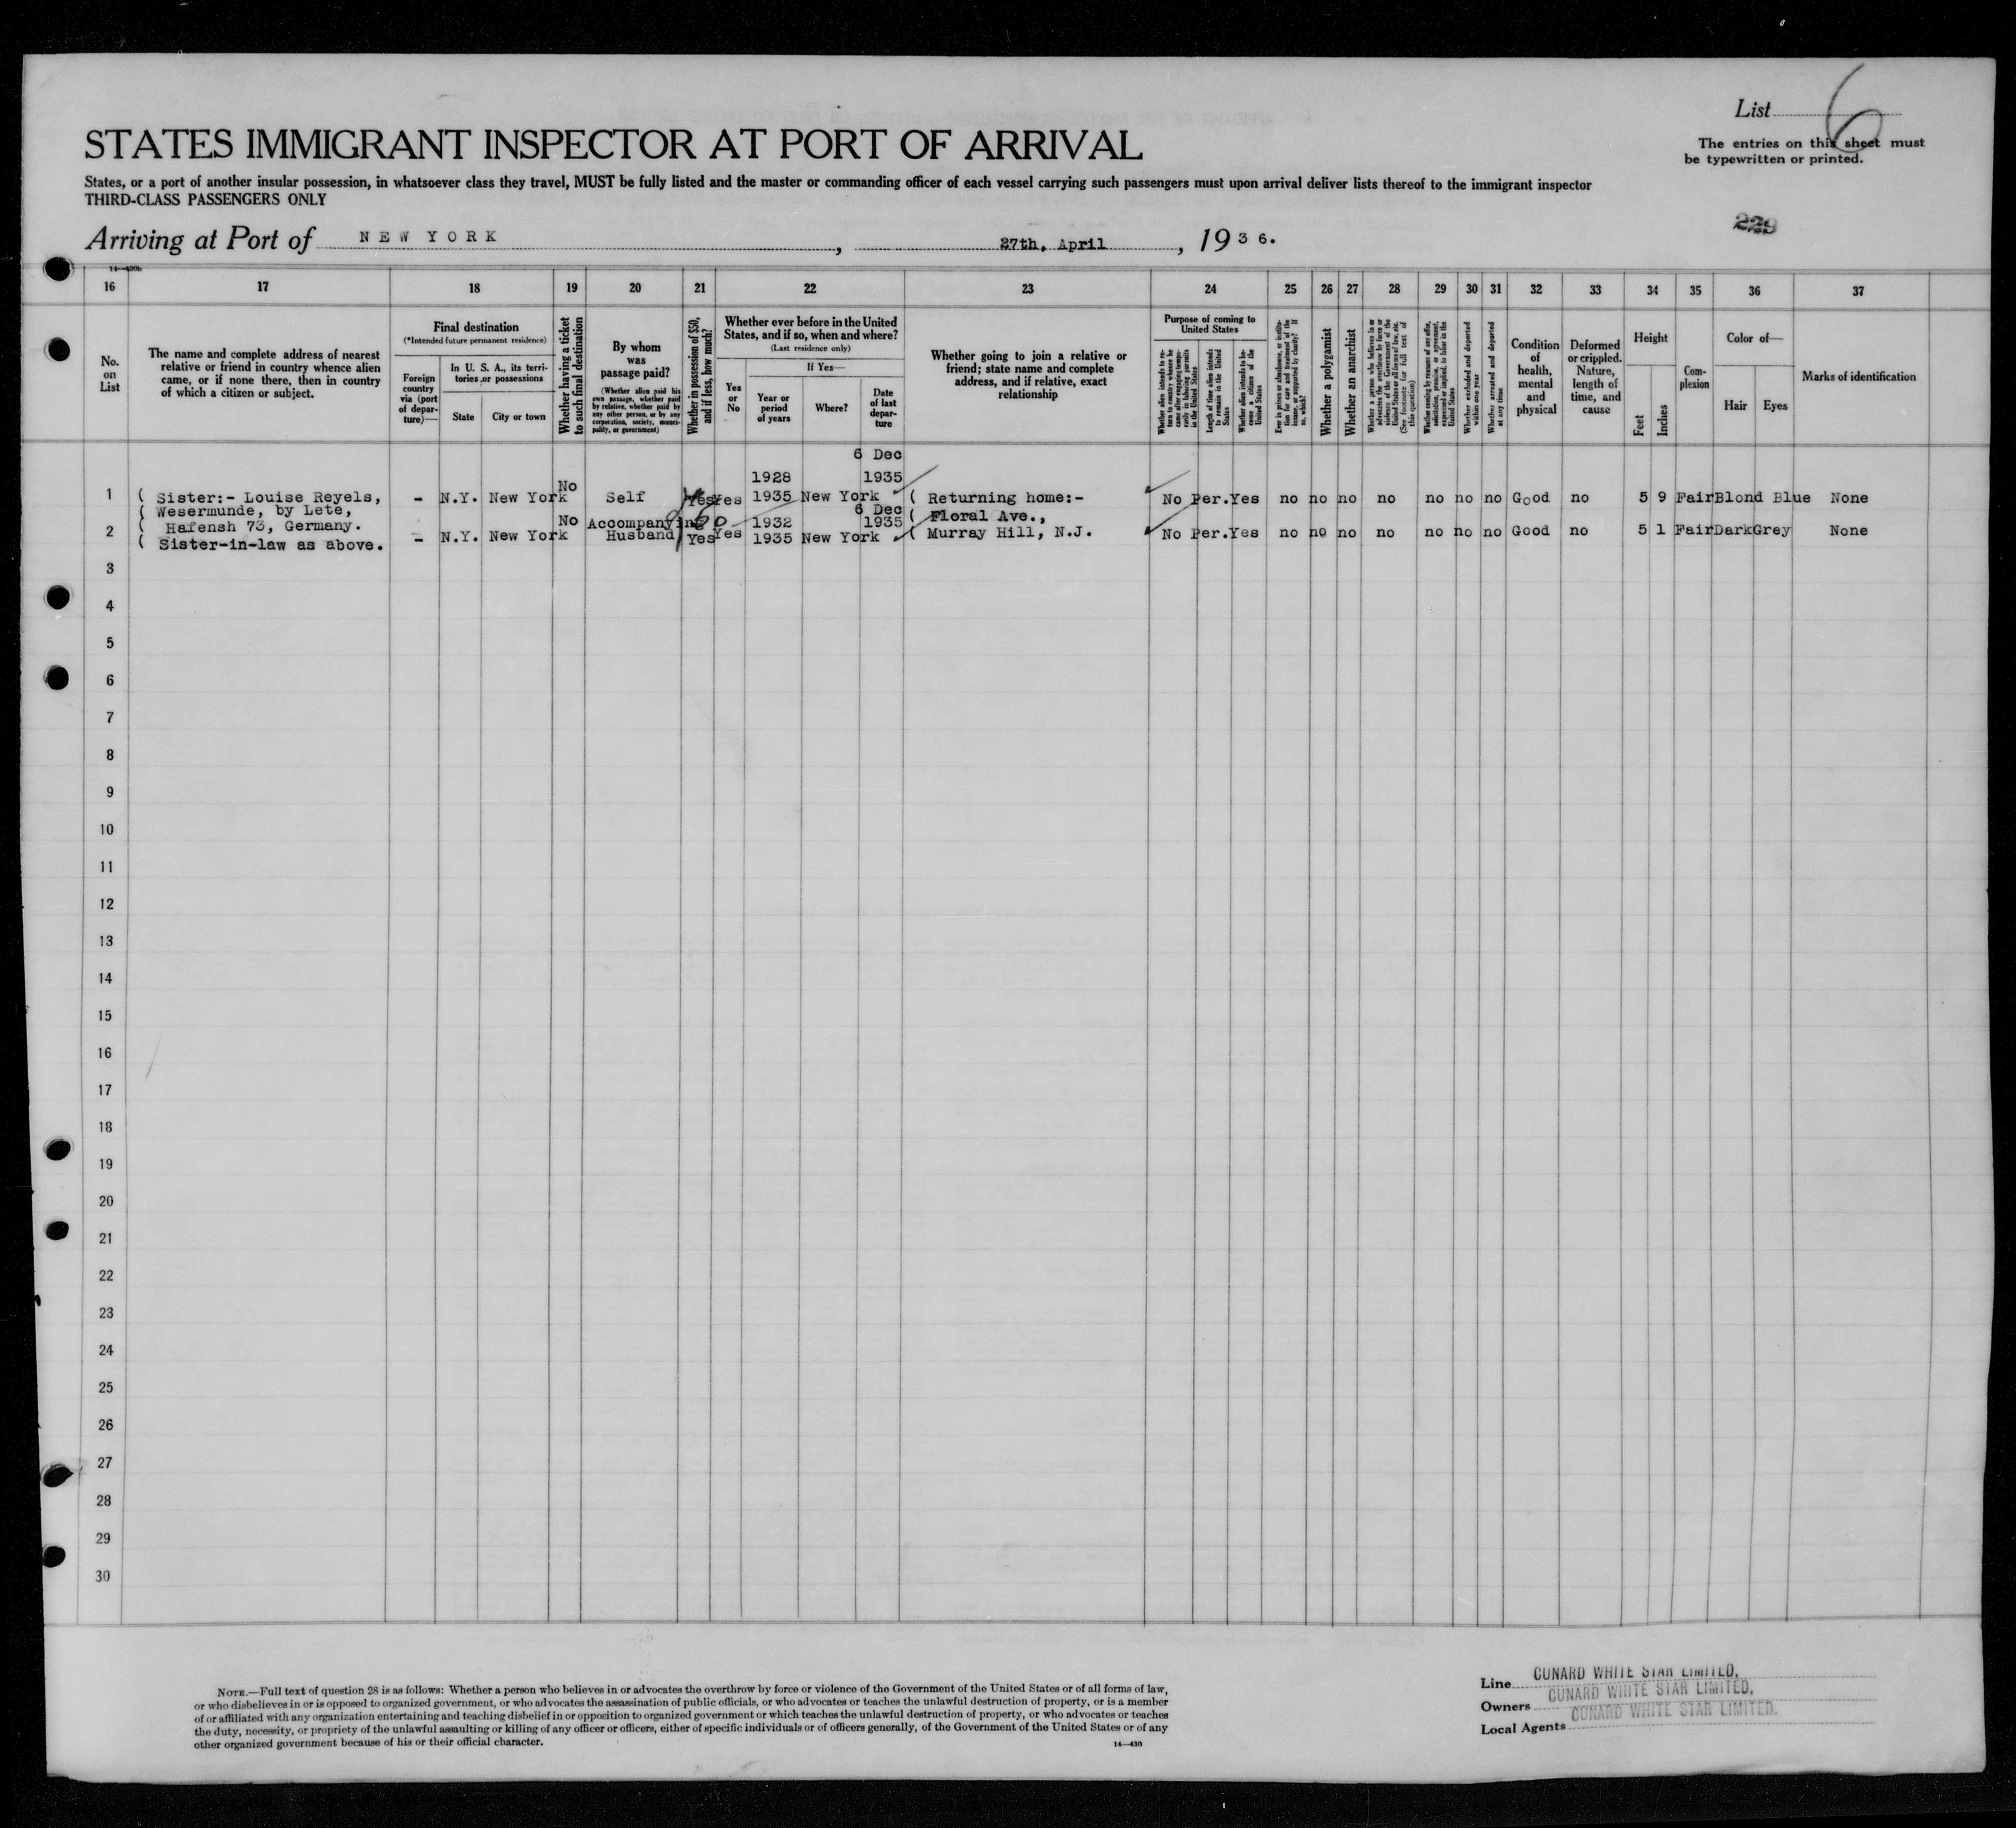 List 6
The entries on this sheet must
be typewritten or printed.
STATES IMMIGRANT INSPECTOR AT PORT OF ARRIVAL
States, or a port of another insular possession, in whatsoever class they travel, MUST be fully listed and the master or commanding officer of each vessel carrying such passengers must upon arrival deliver lists thereof to the immigrant inspector
THIRD-CLASS PASSENGERS ONLY
229
Arriving at Port of NEW YORK, 27th, April, 1936.
16 17 18 19 20 21 22 23 24 25 26 27 28 29 30 31 32 33 34 35 36 37
No. on List
The name and complete address of nearest
relative or friend in country whence alien
came, or if none there, then in country
of which a citizen or subject.
Final destination
(*Intended future permanent residence)
Foreign country via (port of departure)—
In U. S. A., its territories or possessions
State
City or town
Whether having a ticket to such final destination
By whom was passage paid?
(Whether alien paid his own passage, whether paid by relative, whether paid by any other person, or by any corporation, society, municipality, or government)
Whether in possession of $50, and if less, how much?
Whether ever before in the United
States, and if so, when and where?
(Last residence only)
Yes or No
If Yes—
Year or period of years
Where?
Date of last departure
Whether going to join a relative or
friend; state name and complete
address, and if relative, exact
relationship
Purpose of coming to United States
Length of time alien intends to remain in the United States
Whether alien intends to become a citizen of the United States
Whether a polygamist
Whether an anarchist
Whether excluded and deported within one year
Whether arrested and deported at any time
Condition of health, mental and physical
Deformed or crippled. Nature, length of time, and cause
Height
Feet
Inches
Complexion
Color of—
Hair
Eyes
Marks of identification
6 Dec
1928 1935
1 ( Sister:- Louise Reyels, - N.Y. New York No Self Yes Yes 1935 New York ( Returning home:- No Per. Yes no no no no no no no Good no 5 9 Fair Blond Blue None
( Wesermunde, by Lete, 6 Dec
( Hafensh 73, Germany. No Accompanying 50 1932 1935 ( Floral Ave.,
2 ( Sister-in-law as above. - N.Y. New York Husband Yes Yes 1935 New York ( Murray Hill, N.J. No Per. Yes no no no no no no no Good no 5 1 Fair Dark Grey None
3
4
5
6
7
8
9
10
11
12
13
14
15
16
17
18
19
20
21
22
23
24
25
26
27
28
29
30
NOTE.—Full text of question 28 is as follows: Whether a person who believes in or advocates the overthrow by force or violence of the Government of the United States or of all forms of law,
or who disbelieves in or is opposed to organized government, or who advocates the assassination of public officials, or who advocates or teaches the unlawful destruction of property, or is a member
of or affiliated with any organization entertaining and teaching disbelief in or opposition to organized government or which teaches the unlawful destruction of property, or who advocates or teaches
the duty, necessity, or propriety of the unlawful assaulting or killing of any officer or officers, either of specific individuals or of officers generally, of the Government of the United States or of any
other organized government because of his or their official character.
14—430
Line CUNARD WHITE STAR LIMITED.
Owners CUNARD WHITE STAR LIMITED.
Local Agents CUNARD WHITE STAR LIMITED.